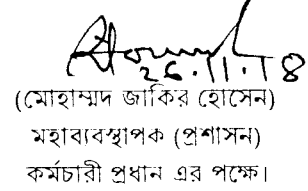 26.11.18
(মোহাম্মদ জাকির হোসেন)
মহাব্যবস্থাপক (প্রশাসন)
কর্মচারী প্রধান এর পক্ষে।